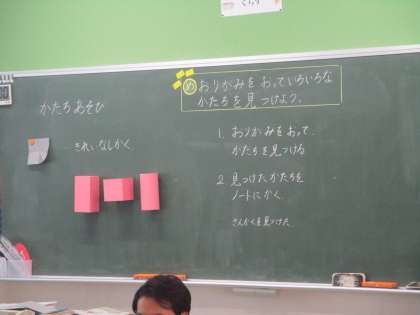 かたちあそび
きれいなしかく
めおりがみをおっていろいろな
かたちを見つけよう。
1. おりがみをおって
かたちを見つける
2. 見つけたかたちを
ノートにかく
さんかくを見つけた